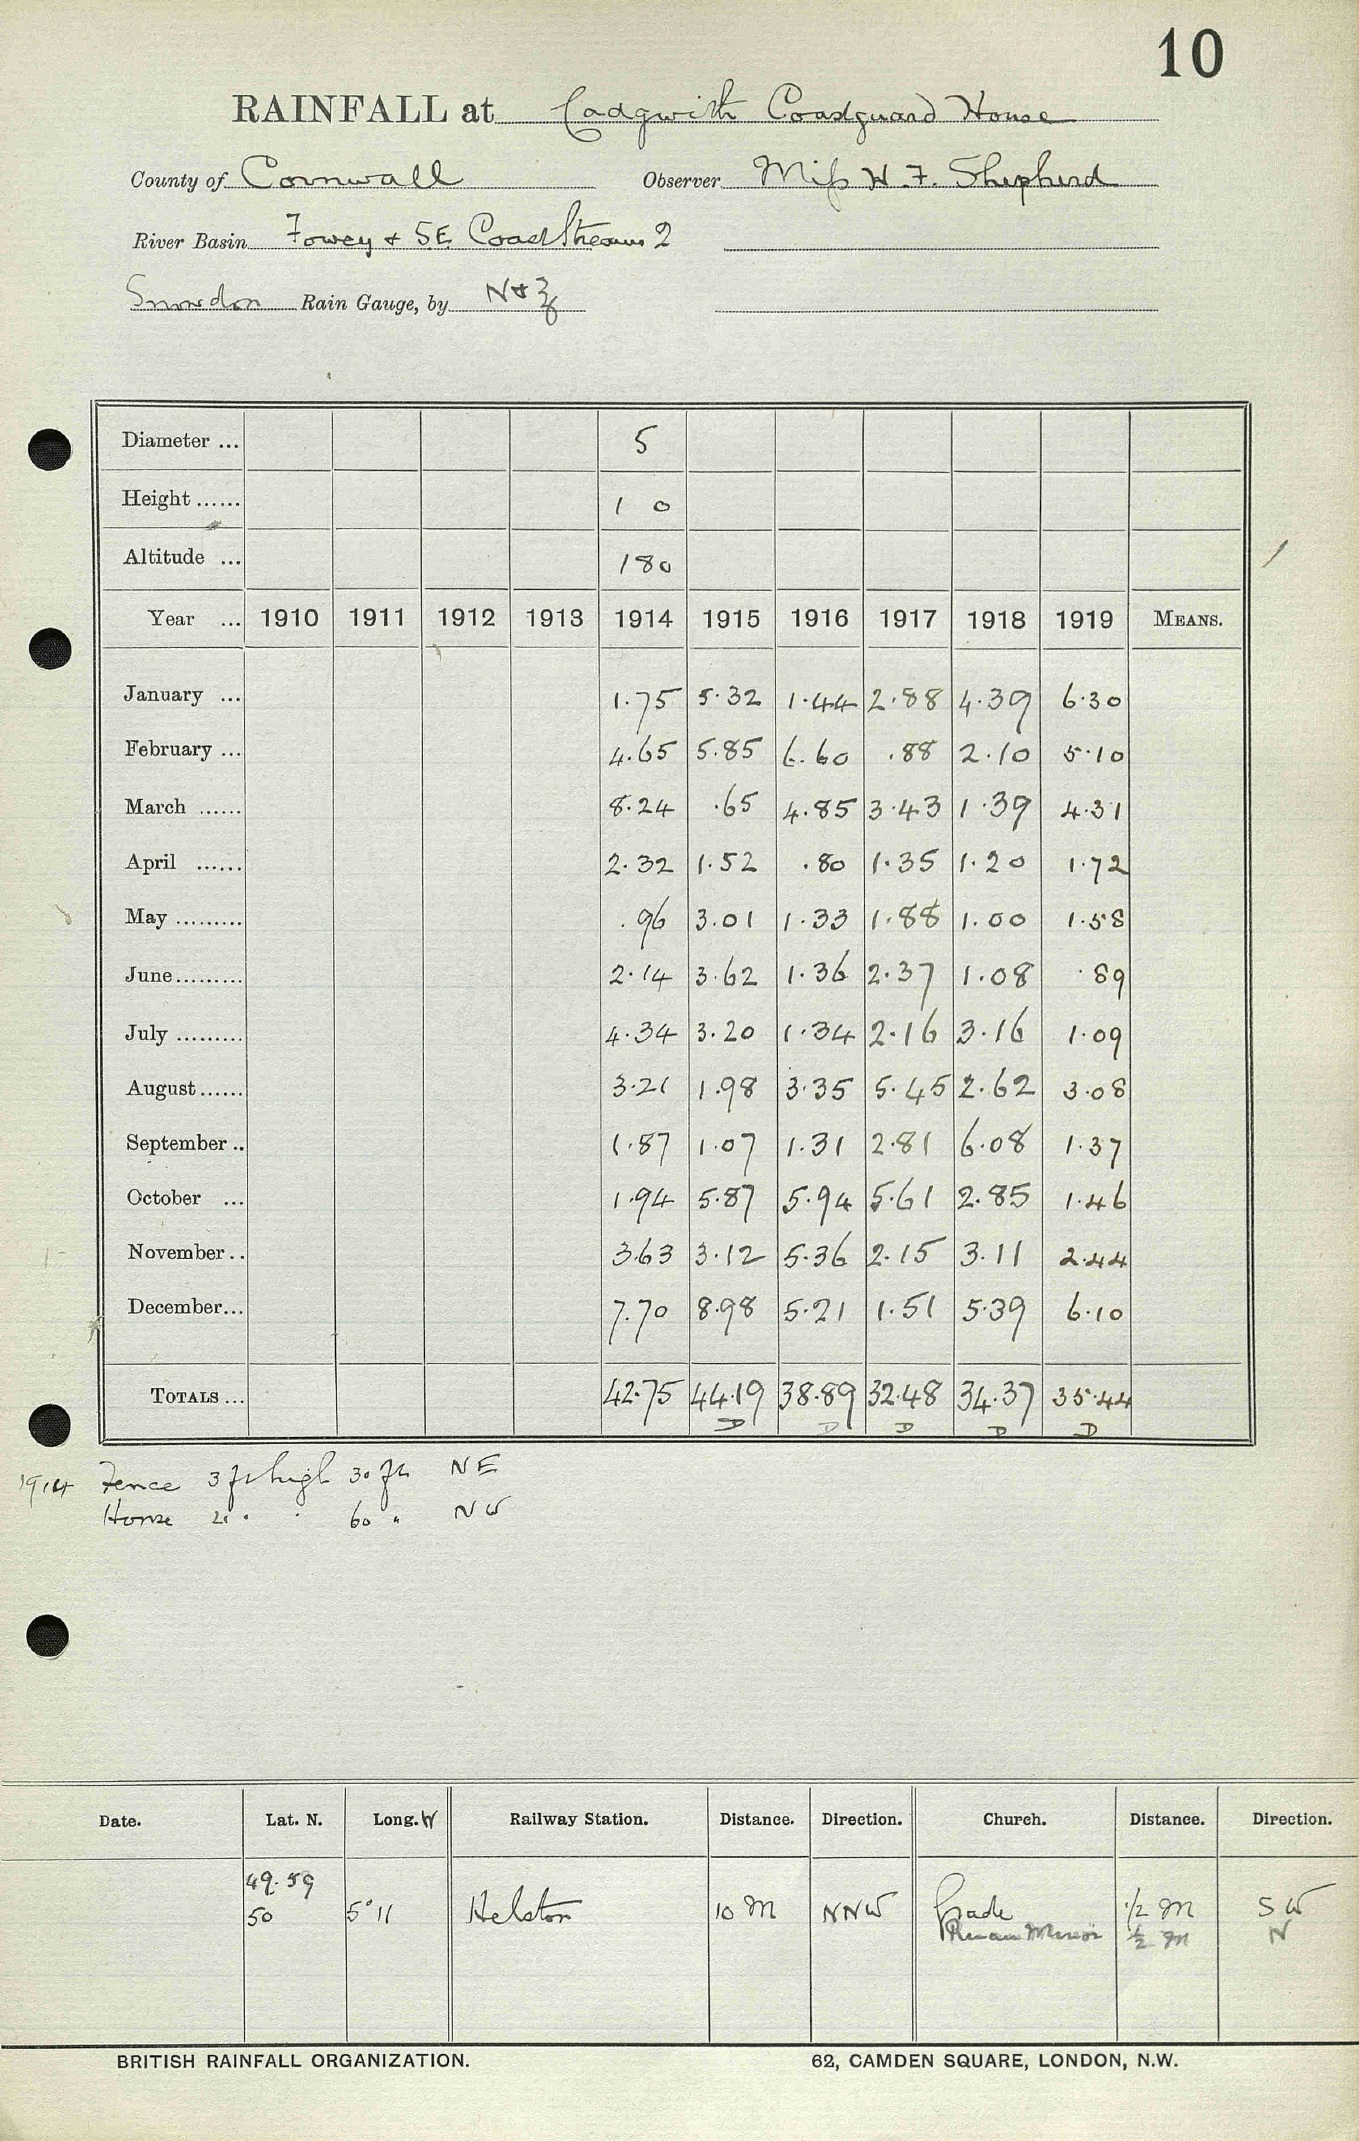 10
RAINFALL at Cadgwith Coastguard House
County of Cornwall Observer Miss H. F. Shepherd
River Basin Fowey & S.E. Coast Streams 2
Snowdon Rain Gauge, by N & Z
Diameter ... 5
Height ...... 1 0
Altitude ... 180
Year ... 1910 1911 1912 1913 1914 1915 1916 1917 1918 1919 MEANS.
January ... 1.75 5.32 1.44 2.88 4.39 6.30
February ... 4.65 5.85 6.60 .88 2.10 5.10
March ...... 8.24 .65 4.85 3.43 1.39 4.31
April ...... 2.32 1.52 .80 1.35 1.20 1.72
May ......... .96 3.01 1.33 1.88 1.00 1.58
June ......... 2.14 3.62 1.36 2.37 1.08 .89
July ......... 4.34 3.20 1.34 2.16 3.16 1.09
August ...... 3.21 1.98 3.35 5.45 2.62 3.08
September .. 1.87 1.07 1.31 2.81 6.08 1.37
October ... 1.94 5.87 5.94 5.61 2.85 1.46
November .. 3.63 3.12 5.36 2.15 3.11 2.44
December ... 7.70 8.98 5.21 1.51 5.39 6.10
TOTALS ... 42.75 44.19 38.89 32.48 34.37 35.44
D D D D D
1914 Fence 3 ft high 30 ft NE
House 21 " " 60 " NW
Date. Lat. N. Long. W Railway Station. Distance. Direction. Church. Distance. Direction.
49.59
50 5°11 Helston 10 M NNW Grade 1/2 M SW
Ruan Minor 1/2 M N
BRITISH RAINFALL ORGANIZATION. 62, CAMDEN SQUARE, LONDON, N.W.